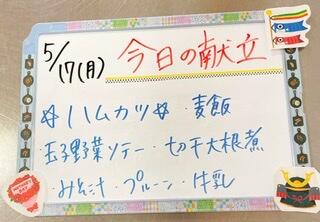 5/17(月) 今日の献立
☆ハムカツ☆ ・麦飯
・玉子野菜ソテー ・切干大根煮
・みそ汁 ・プルーン ・牛乳